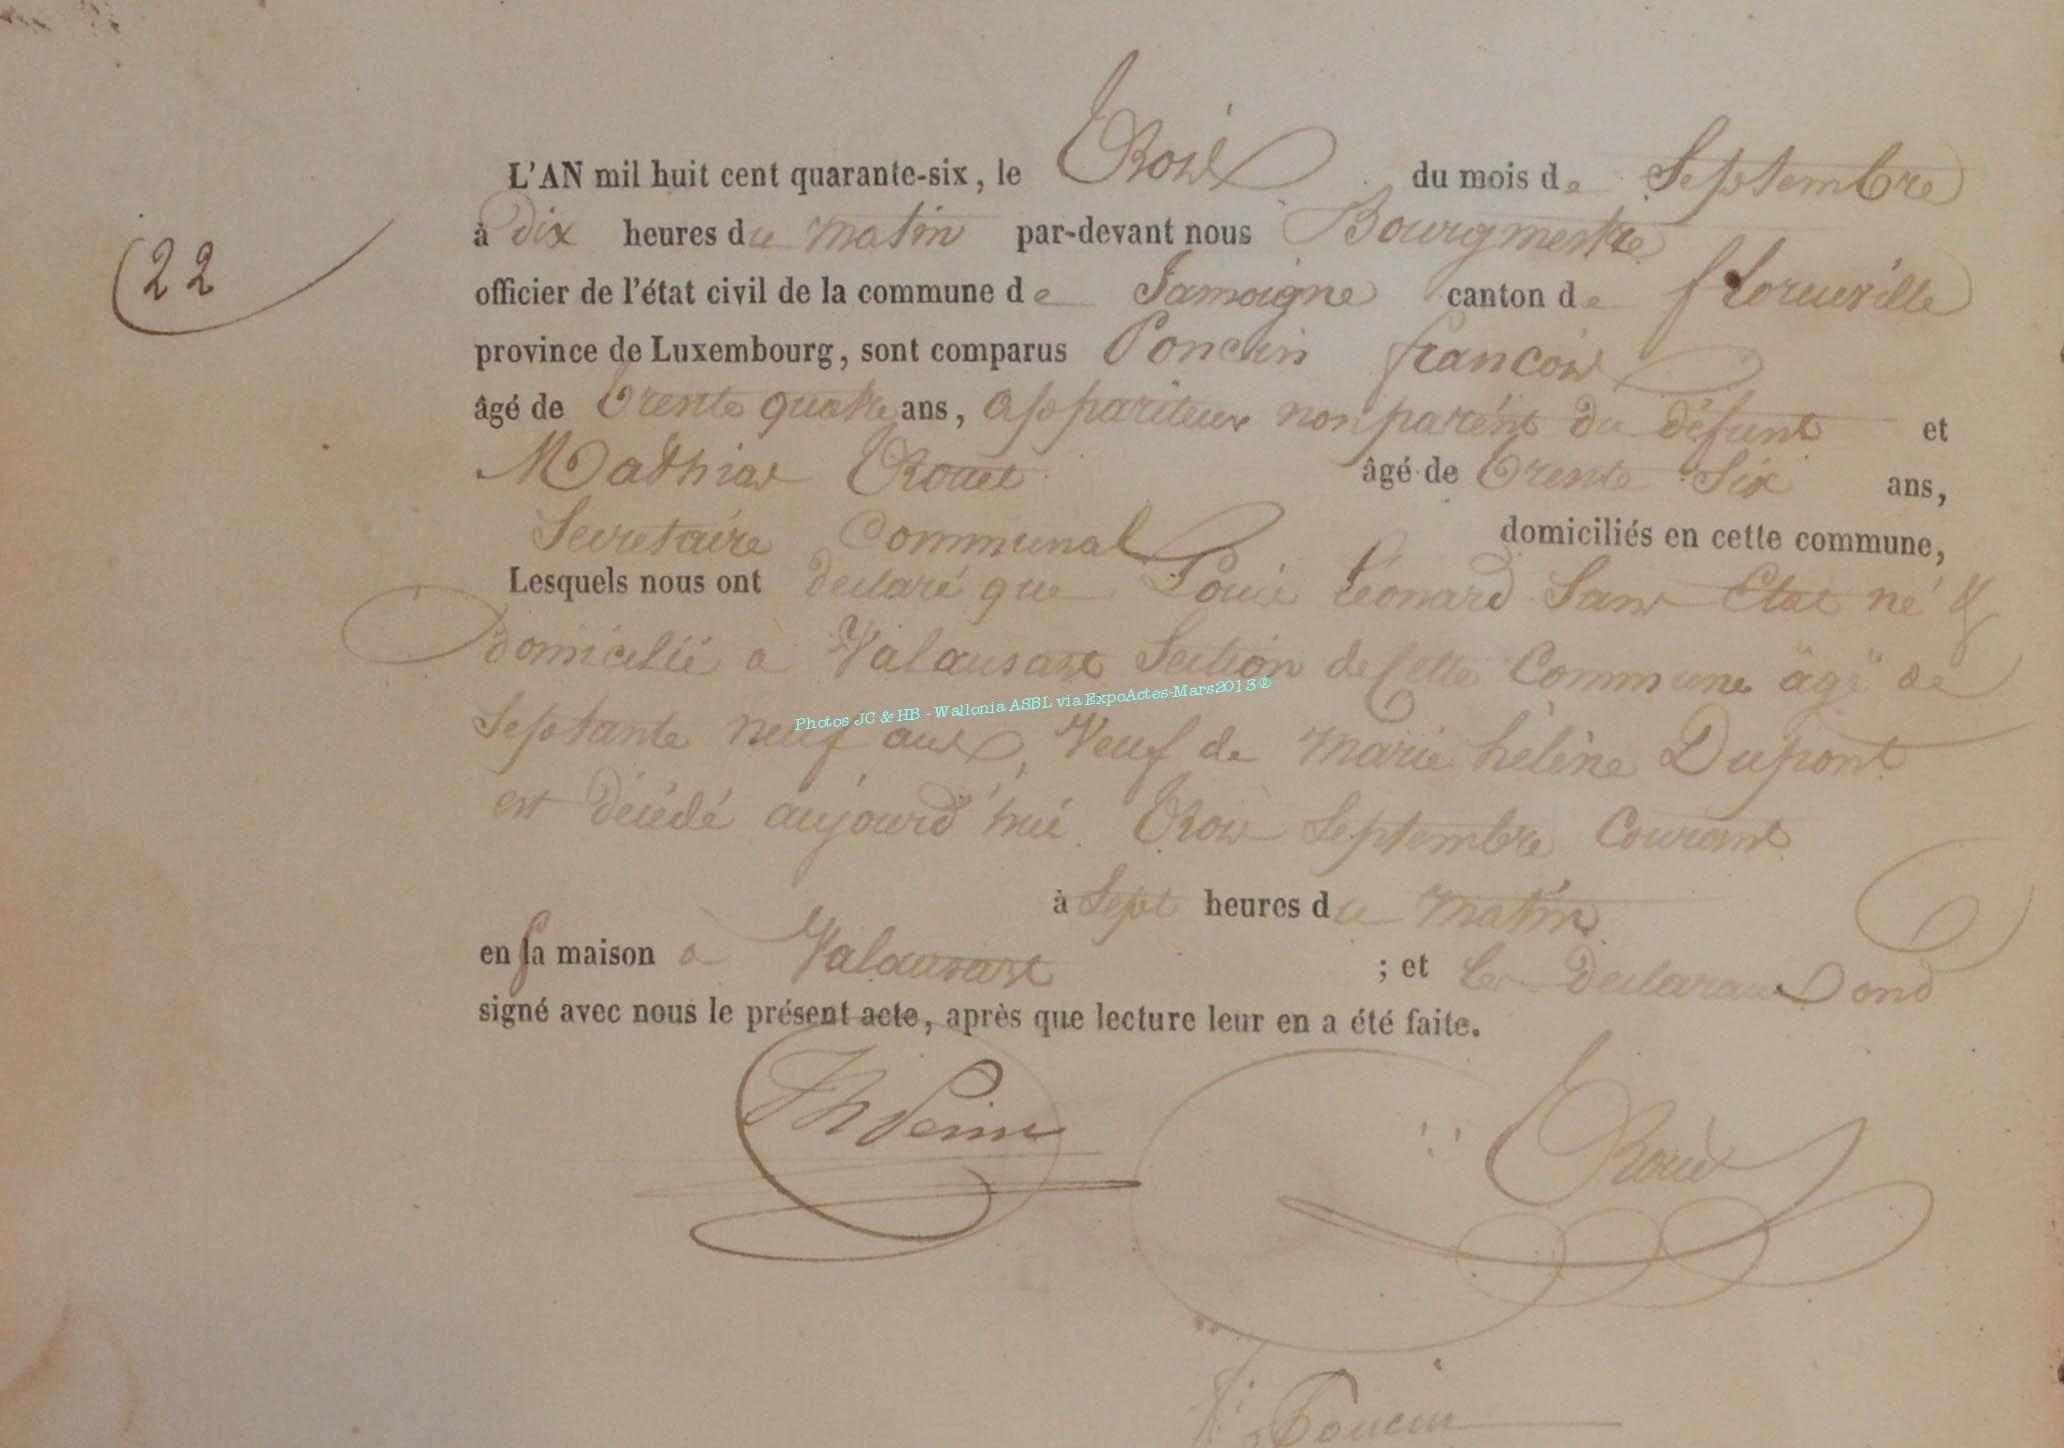 L'AN mil huit cent quarante-six, le Trois du mois de Septembre
à Dix heures du matin par-devant nous Bourgmestre
22
officier de l'état civil de la commune de Jamoigne canton de florenville
province de Luxembourg, sont comparus Poncin françois
âgé de trente quatre ans, appariteur non parent du défunt et
Mathias âgé de trente Six ans,
Secretaire Communal domiciliés en cette commune,
Lesquels nous ont declaré que Louis Léonard Sans Etat né &
domicilié à Valansart Section de Cette Commune âgé de
Septante neuf ans, Veuf de Marie hélène Dupont
est décédé aujourd'hui Trois Septembre Courant
à Sept heures du matin
en sa maison à Valansart ; et les Declarans ond
signé avec nous le présent acte, après que lecture leur en a été faite.
Poncin
Photos JC & HB - Wallonia ASBL via ExpoActes-Mars2013®